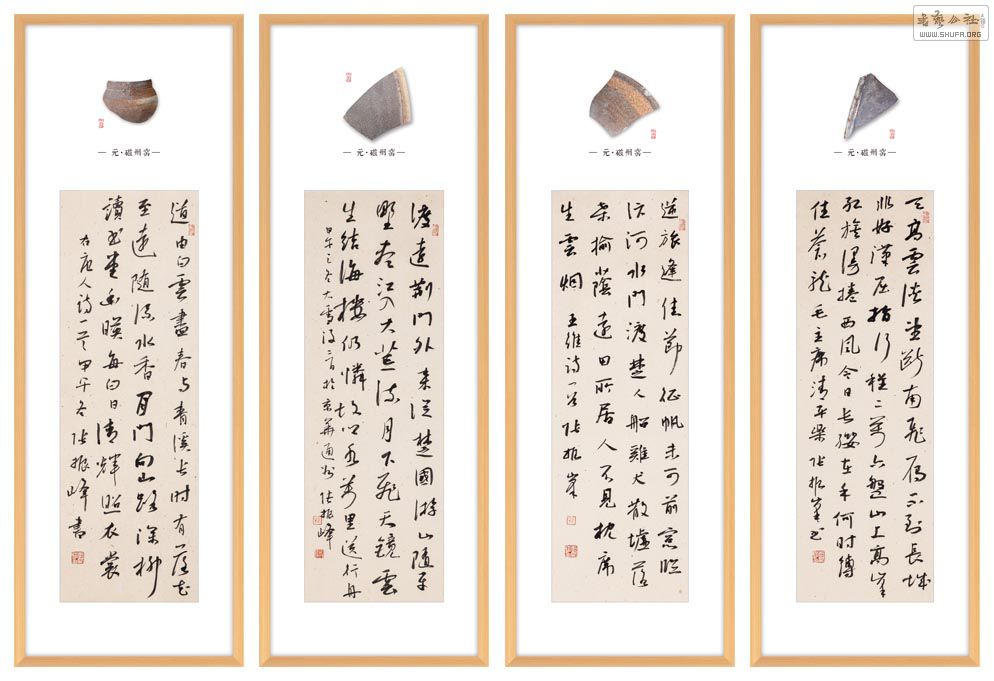 书艺公社
WWW.SHUFA.ORG
元·磁州窑
道由白雲盡春与青溪長时有落花
至遠随流水香閒門向山路深柳
讀书堂幽暎每白日清輝照衣裳
右唐人诗一首甲午冬张振峰書
元·磁州窑
渡遠荆門外来從楚國游山随平
野尽江入大荒流月下飛天鏡雲
生结海楼仍憐故乡水万里送行舟
甲午之冬大雪後 於京華通州张振峰
元·磁州窑
逆旅逢佳節征帆未可前窓臨
汴河水門渡楚人船雞犬散墟落
桑榆蔭遠田所居人不見枕席
生雲烟 王维诗一首 张振峰
元·磁州窑
天高雲淡望断南飛雁不到長城
非好漢屈指行程二万六盤山上高峰
红旗漫捲西风今日长缨在手何时缚
住苍龙毛主席清平乐张振峰书